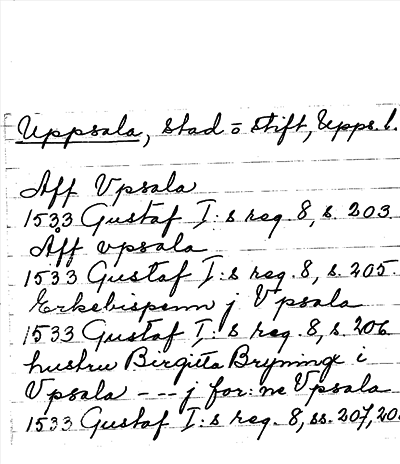 Uppsala, stad o stift, Upps. l.
Aff Vpsala
1533 Gustaf I:s reg. 8, s. 203.
Åff vpsala
1533 Gustaf I:s reg. 8, s. 205.
Erkebispenn j Vpsala
1533 Gustaf I:s reg. 8, s. 206
hustru Birgitta Bryninge i
Vpsala --- j for:ne Vpsala
1533 Gustaf I:s reg. 8, ss. 207, 20